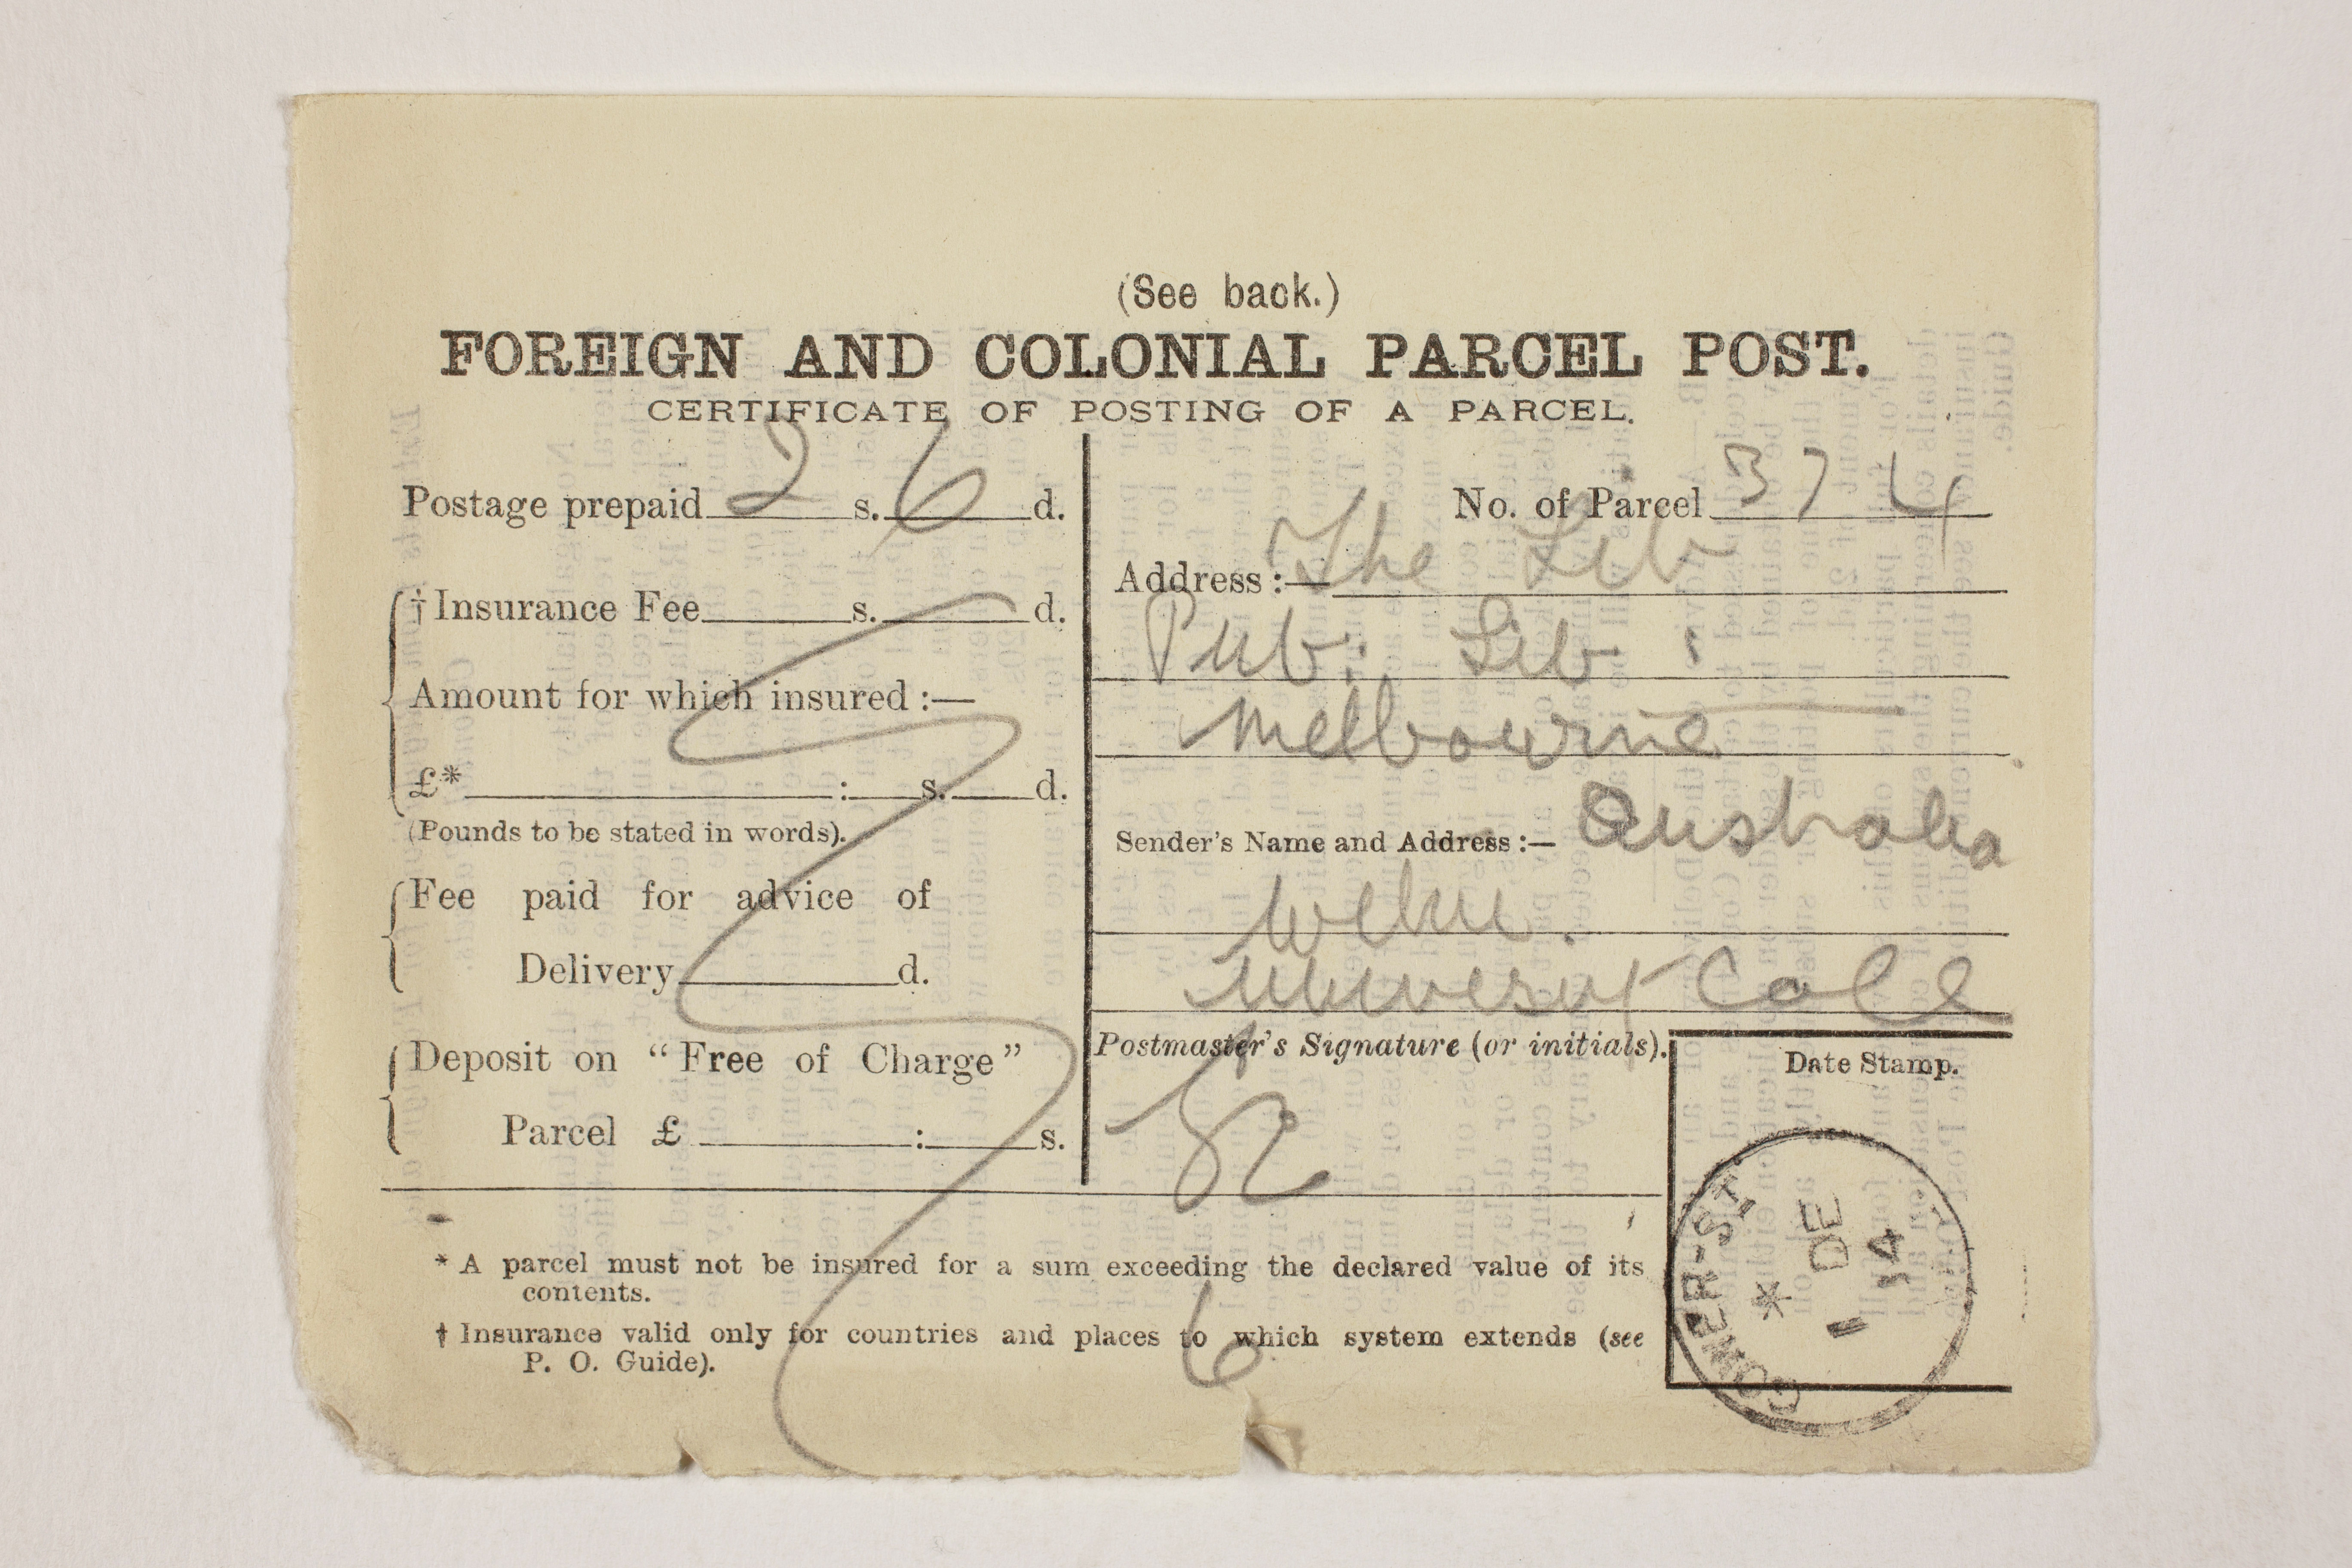 (See back.)
FOREIGN AND COLONIAL PARCEL POST.
CERTIFICATE OF POSTING OF A PARCEL.
Postage prepaid 2 s. 6 d.
†Insurance Fee s. d.
Amount for which insured :—
£* : s. d.
(Pounds to be stated in words).
Fee paid for advice of
Delivery d.
Deposit on “Free of Charge”
Parcel £ : s.
No. of Parcel 374
Address :— The Lib
Pub: Lib :
Melbourne
Australia
Sender's Name and Address :—
University Coll
Postmaster's Signature (or initials).
Date Stamp.
GOWER-ST.
*
DE
14
* A parcel must not be insured for a sum exceeding the declared value of its
contents.
† Insurance valid only for countries and places to which system extends (see
P. O. Guide).
6